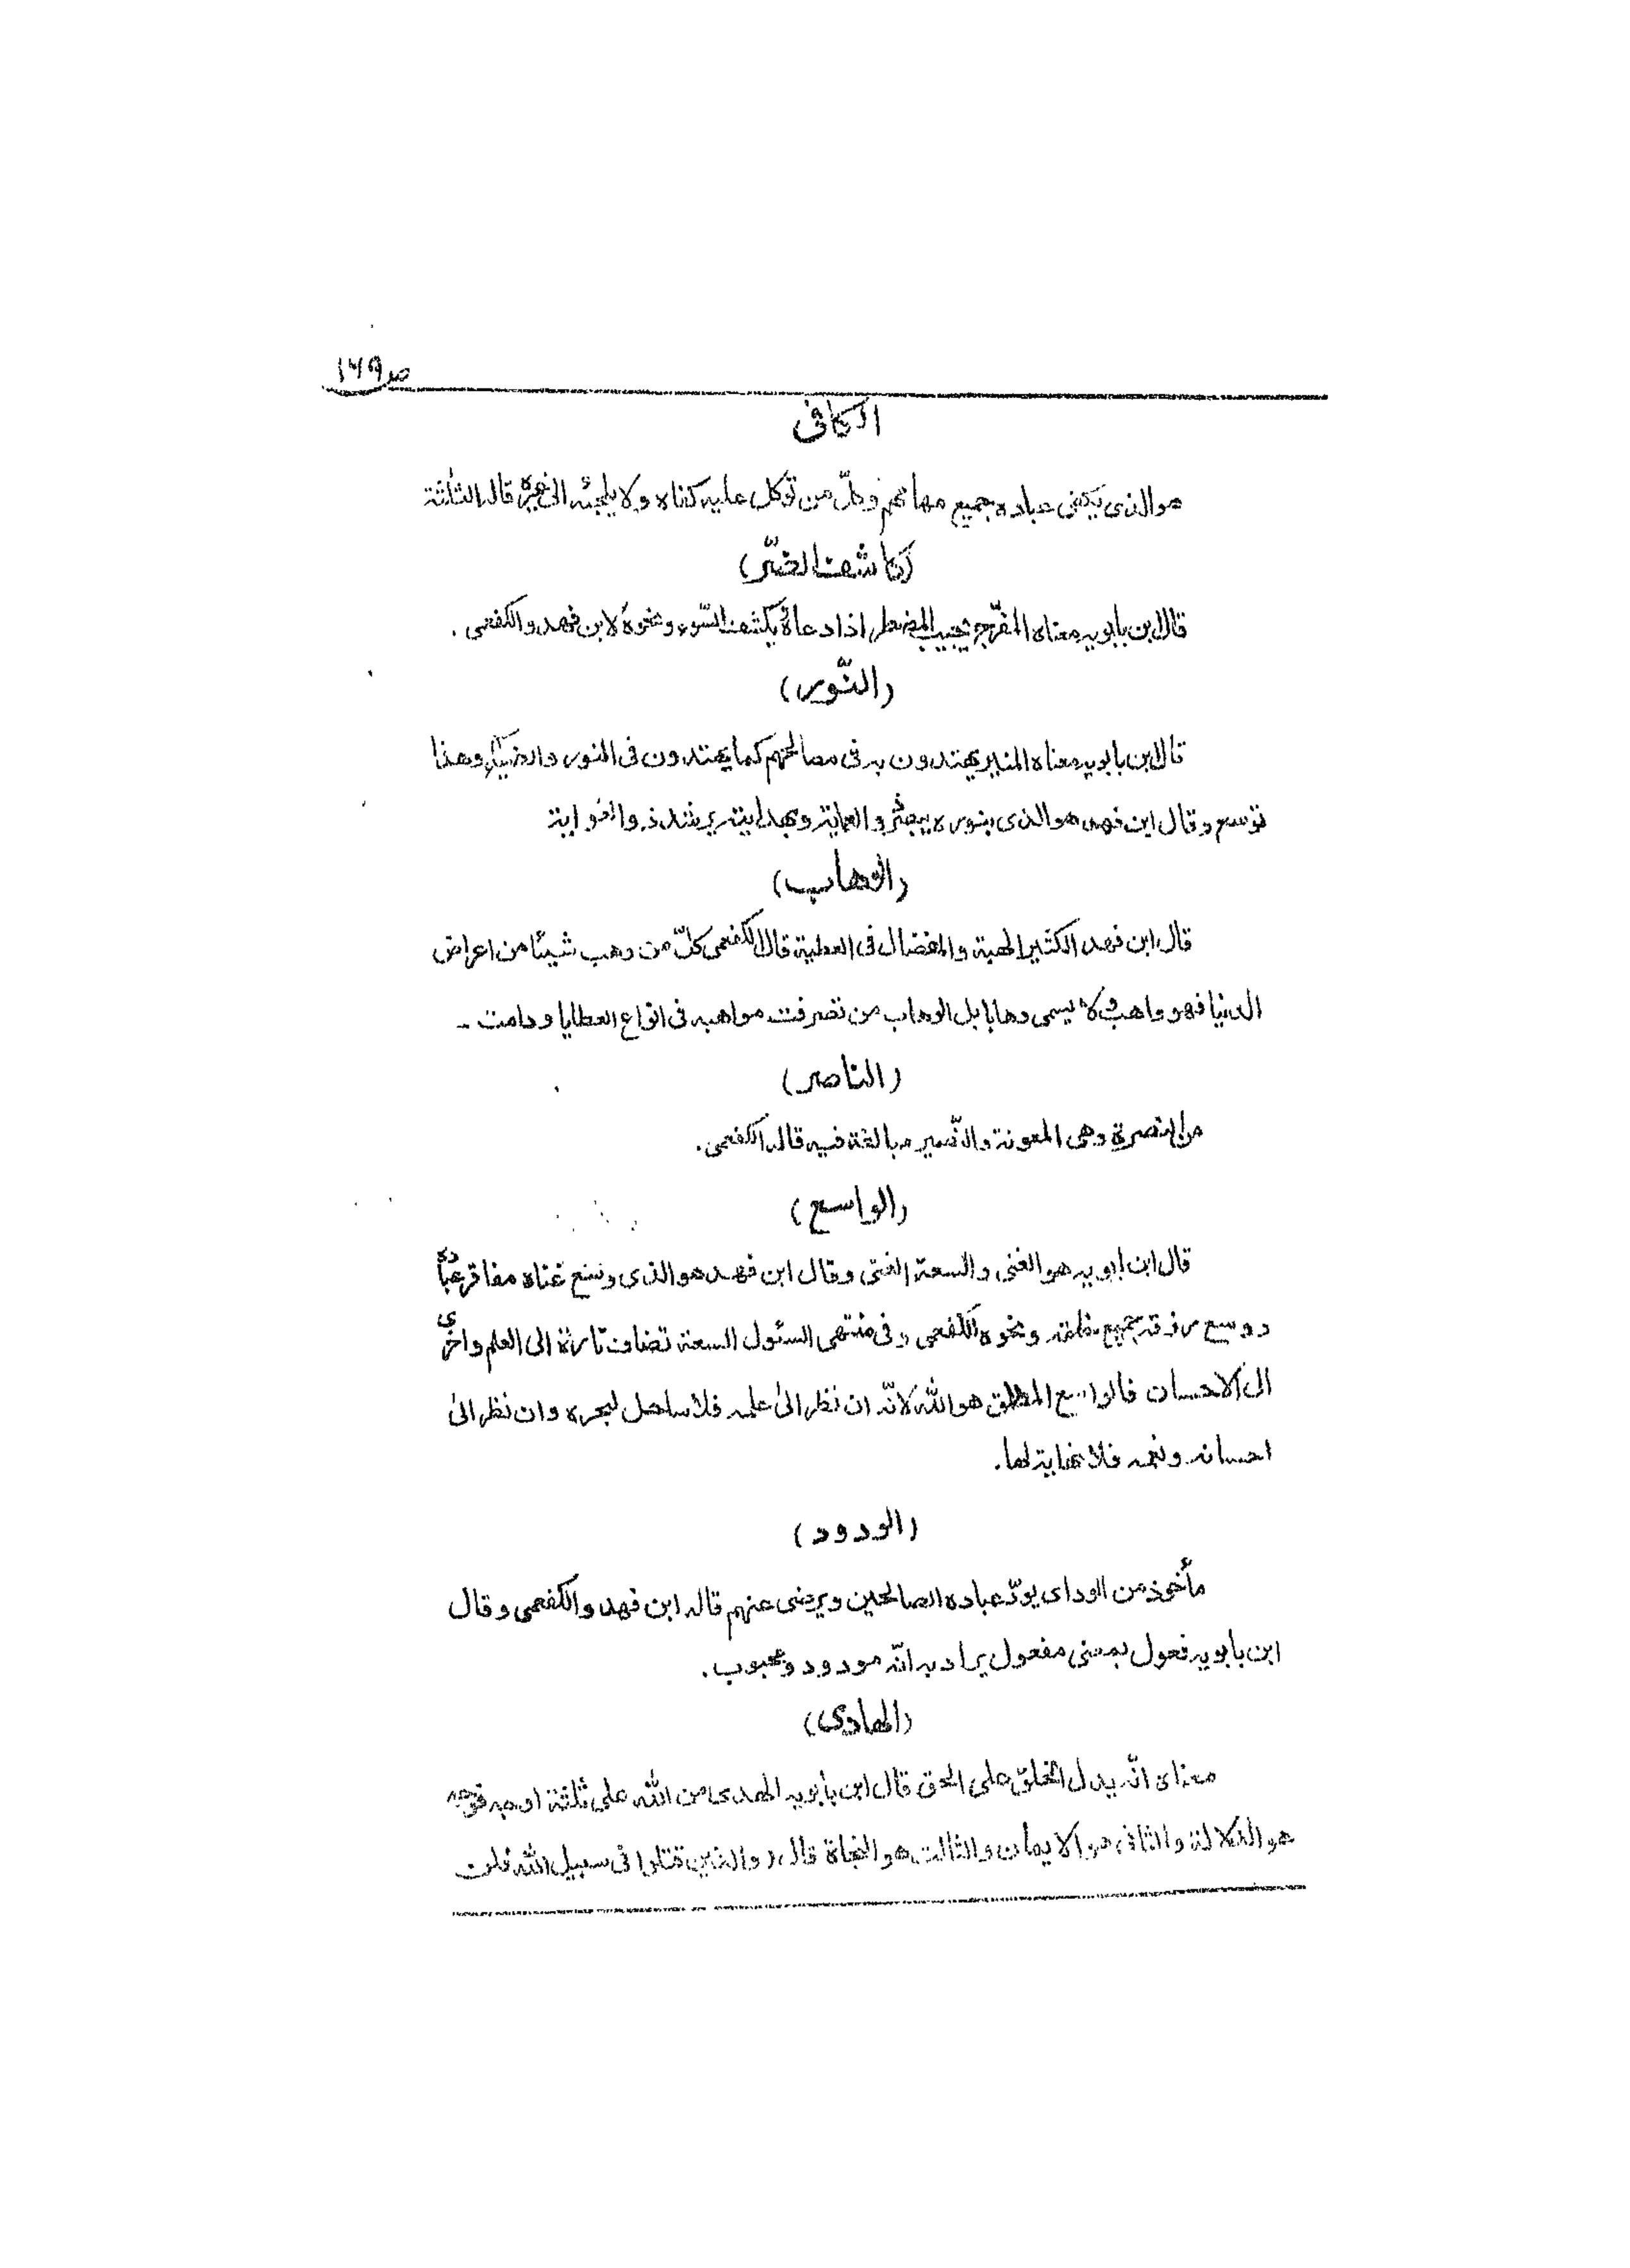 ص ١٦٩
الكافى
هو الذى يكفى عباده جميع مهامهم وكلّ من توكل عليه كفاه ولا يلجئه الى غيره قاله الثلثة
(كاشف الضّر)
قال ابن بابويه معناه المفّرج يجيب المضطر اذا دعاه ويكشف السّوء ونحوه لابن فهد والكفعمى .
(النّور)
قال ابن بابويه معناه المنير يهتدون به فى مصالحهم كما يهتدون فى النور والضياء وهذا
توسع وقال ابن فهد هو الذى بنوره يبصر ذو العماية وبهدايته يرشد ذو الغواية
(الوهاب)
قال ابن فهد الكثير الهبة والمفضال فى العطية قال الكفعمى كلّ من وهب شيئا من اعراض
الدنيا فهو واهب ولا يسمى وهابا بل الوهاب من تصرفت مواهبه فى انواع العطايا ودامت -
(الناصر)
من النصرة وهى المعونة والنّصير مبالغة فيه قاله الكفعمى.
(الواسع)
قال ابن بابويه هو الغنى والسعة الغنى وقال ابن فهد هو الذى وسع غناه مفاقر عباده
ووسع رزقه جميع خلقه ونحوه الكفعمى وفى منتهى السئول السعة تضاف تارة الى العلم واخرى
الى الاحسان فالواسع المطلق هو الله لانّه ان نظر الى علمه فلا ساحل لبحره وان نظر الى
احسانه ونعمه فلا نهاية لها.
(الودود)
مأخوذ من الود اى يودّ عباده الصالحين ويرضى عنهم قاله ابن فهد والكفعمى وقال
ابن بابويه فعول بمعنى مفعول يراد به انّه مودود ومحبوب.
(الهادى)
معناه انّه يدل الخلق على الحق قال ابن بابويه الهدى من الله على ثلثة اوجه فوجه
هو الدلالة والثانى هو الايمان والثالث هو النجاة قال (والذين قتلوا فى سبيل الله فلن